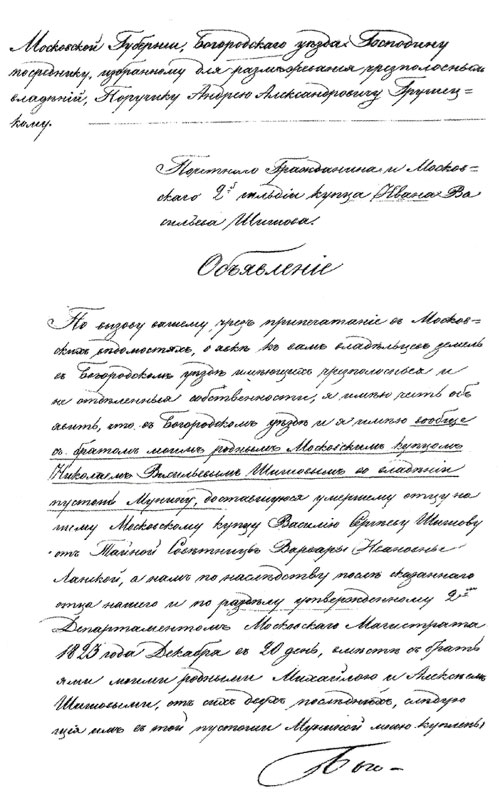 Московской Губерніи, Богородскаго уѣзда Господину
посреднику, избранному для размѣжеванія чрезполосныхъ
владѣній, Поручику Андрею Александровичу Грушец-
кому.
Почетнаго Гражданина и Москов-
скаго 2й гильдіи купца Ивана Ва
сильева Шишова.
Объявленіе
По вызову вашему чрезъ припечатаніе въ Москов-
скихъ вѣдомостяхъ, о явкѣ къ вамъ владѣльцовъ земель
въ Богородскомъ уѣздѣ имѣющихъ чрезполосныя и
не отдѣленныя собственности, я имѣю честь объ
явить, что въ Богородскомъ уѣздѣ и я имѣю вообще
съ братомъ моимъ роднымъ Московскимъ купцомъ
Николаемъ Васильевымъ Шишовымъ во владѣніи
пустошь Мунину, доставшуюся умершему отцу на
шему Московскому купцу Василію Сергѣеву Шишову
отъ Тайной Совѣтницы Варвары Ивановны
Ланской, а намъ по наслѣдству послѣ сказаннаго
отца нашего и по раздѣлу утвержденному 2мъ
Департаментомъ Московскаго Магистрата
1823 года Декабря въ 20 день, вмѣстѣ съ брать
ями моими родными Михайлою и Алексѣемъ
Шишовыми, отъ сихъ двухъ послѣднихъ, слѣдую
щія имъ въ той пустоши Муниной мною куплены